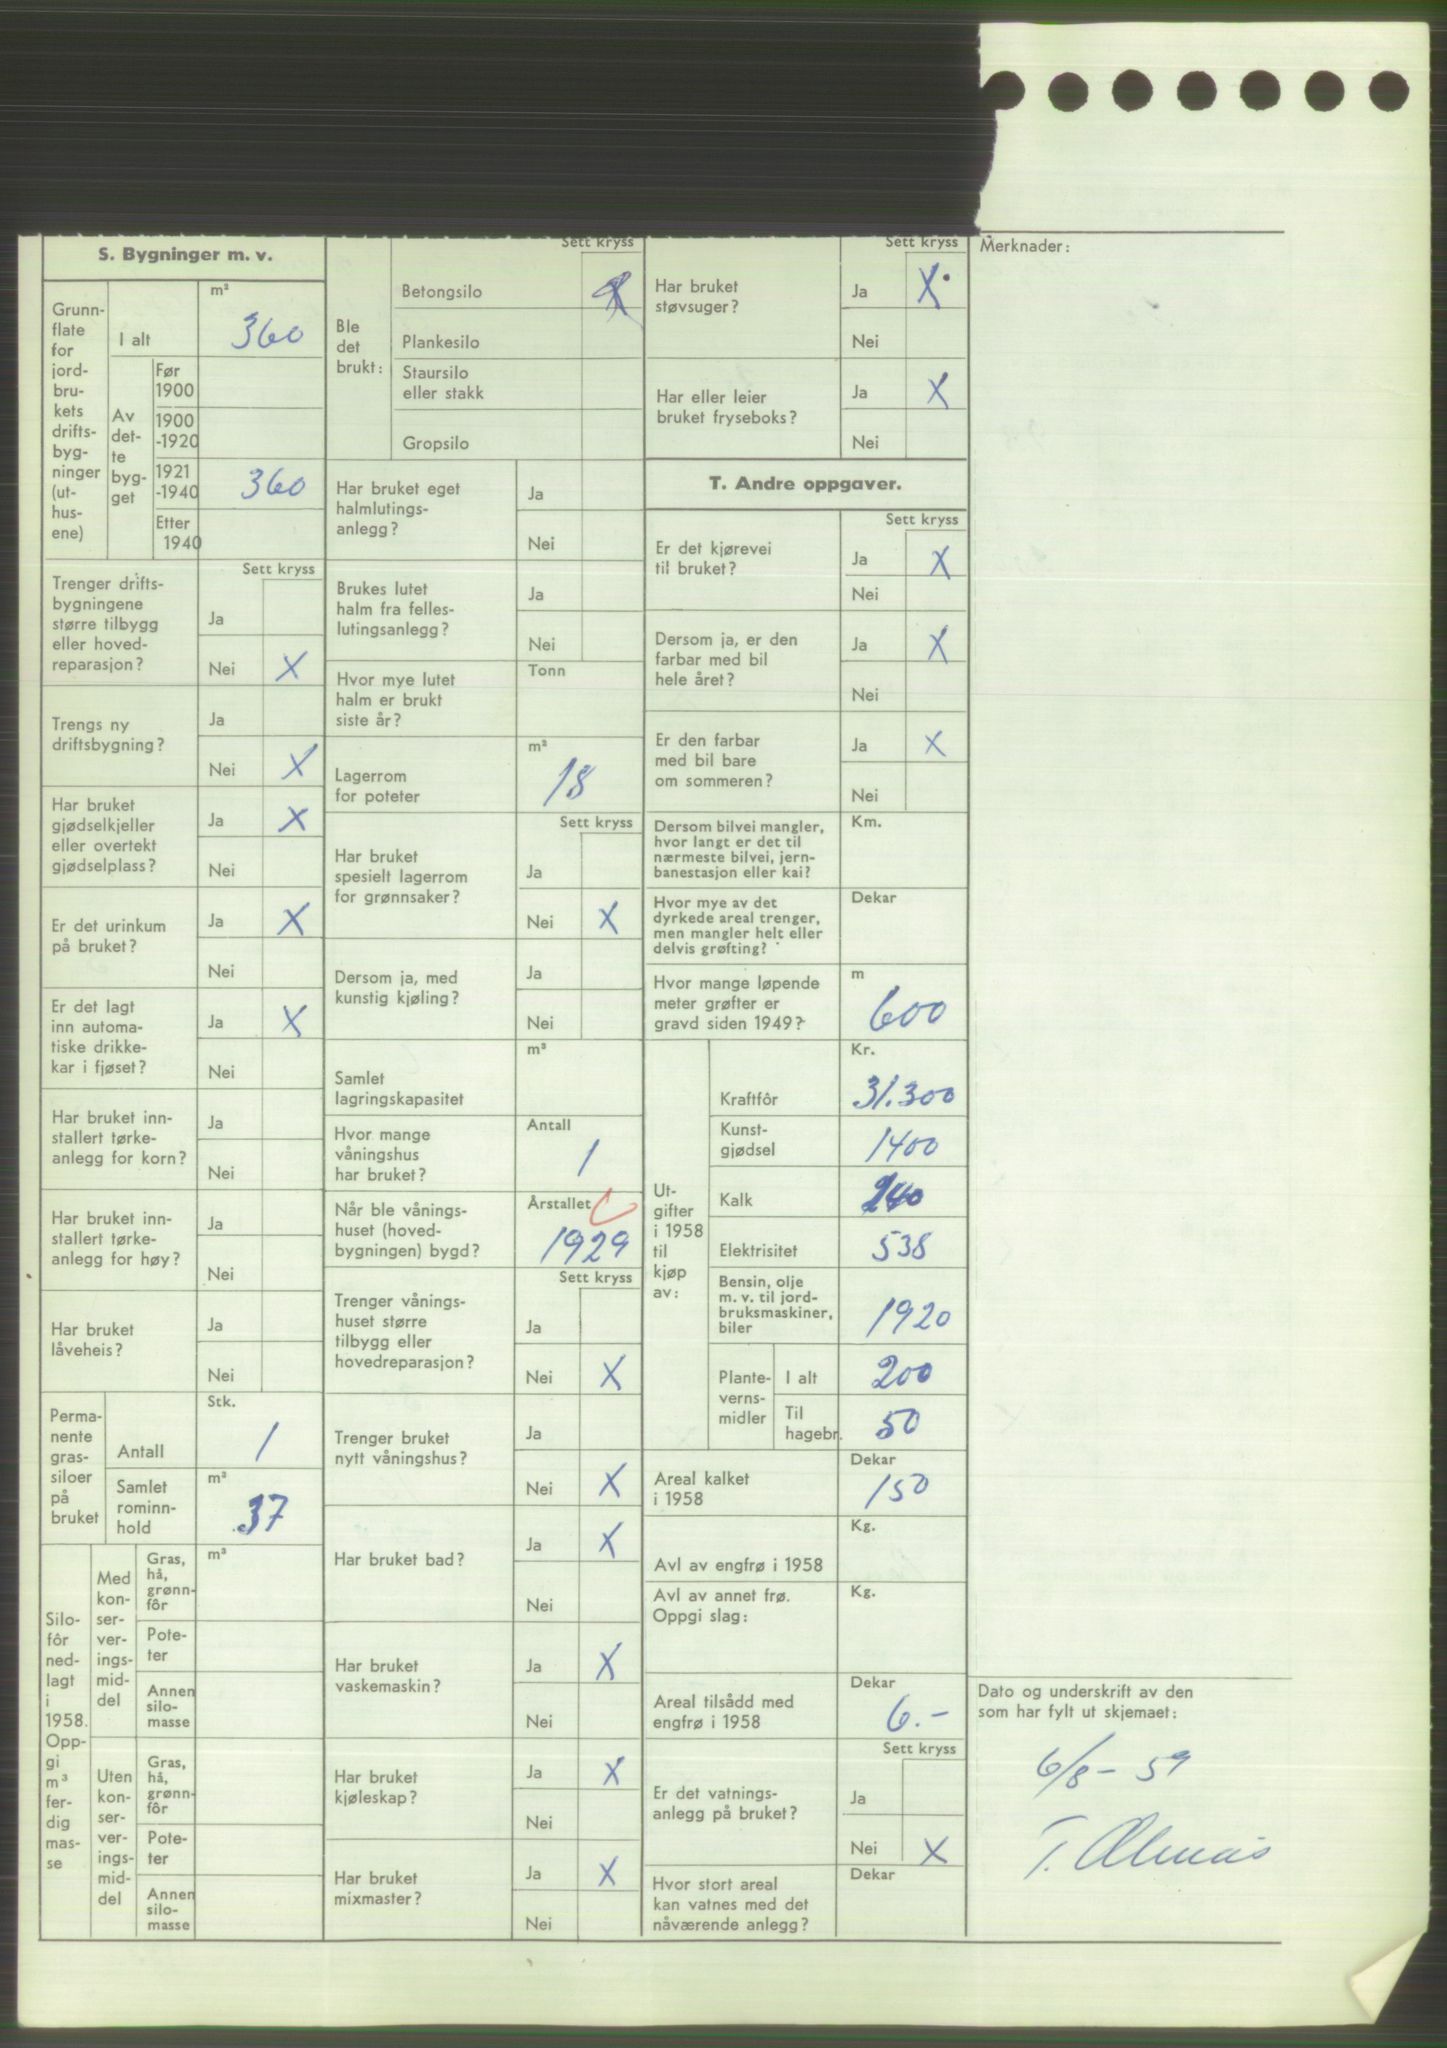 S. Bygninger m. v.
Grunn-
flate
for
jord-
bru-
kets
drifts-
byg-
ninger
(ut-
hus-
ene)
I alt
m²
360
Av
det-
te
byg-
get
Før
1900
1900
-1920
1921
-1940
360
Etter
1940
Sett kryss
Trenger drifts-
bygningene
større tilbygg
eller hoved-
reparasjon?
Ja
Nei X
Trengs ny
driftsbygning?
Ja
Nei X
Har bruket
gjødselkjeller
eller overtekt
gjødselplass?
Ja X
Nei
Er det urinkum
på bruket?
Ja X
Nei
Er det lagt
inn automa-
tiske drikke-
kar i fjøset?
Ja X
Nei
Har bruket inn-
stallert tørke-
anlegg for korn?
Ja
Nei
Har bruket inn-
stallert tørke-
anlegg for høy?
Ja
Nei
Har bruket
låveheis?
Ja
Nei
Perma-
nente
gras-
siloer
på
bruket
Stk.
Antall 1
Samlet
rominn-
hold
m³
37
Silo-
fôr
ned-
lagt
i
1958.
Opp-
gi
m³
fer-
dig
mas-
se
Med
kon-
ser-
ver-
ings-
mid-
del
Gras,
hå,
grønn-
fôr
m³
Pote-
ter
Annen
silo-
masse
Uten
kon-
ser-
ver-
ings-
mid-
del
Gras,
hå,
grønn-
fôr
Pote-
ter
Annen
silo-
masse
Sett kryss
Ble
det
brukt:
Betongsilo X
Plankesilo
Staursilo
eller stakk
Gropsilo
Har bruket eget
halmlutings-
anlegg?
Ja
Nei
Brukes lutet
halm fra felles-
lutingsanlegg?
Ja
Nei
Hvor mye lutet
halm er brukt
siste år?
Tonn
Lagerrom
for poteter
m³
18
Sett kryss
Har bruket
spesielt lagerrom
for grønnsaker?
Ja
Nei X
Dersom ja, med
kunstig kjøling?
Ja
Nei
Samlet
lagringskapasitet
m³
Hvor mange
våningshus
har bruket?
Antall
1
Når ble vånings-
huset (hoved-
bygningen) bygd?
Årstallet
1929
Sett kryss
Trenger vånings-
huset større
tilbygg eller
hovedreparasjon?
Ja
Nei X
Trenger bruket
nytt våningshus?
Ja
Nei X
Har bruket bad?
Ja X
Nei
Har bruket
vaskemaskin?
Ja X
Nei
Har bruket
kjøleskap?
Ja X
Nei
Har bruket
mixmaster?
Ja X
Nei
Sett kryss
Har bruket
støvsuger?
Ja X
Nei
Har eller leier
bruket fryseboks?
Ja X
Nei
T. Andre oppgaver.
Sett kryss
Er det kjørevei
til bruket?
Ja X
Nei
Dersom ja, er den
farbar med bil
hele året?
Ja X
Nei
Er den farbar
med bil bare
om sommeren?
Ja X
Nei
Dersom bilvei mangler,
hvor langt er det til
nærmeste bilvei, jern-
banestasjon eller kai?
Km.
Hvor mye av det
dyrkede areal trenger,
men mangler helt eller
delvis grøfting?
Dekar
Hvor mange løpende
meter grøfter er
gravd siden 1949?
m
600
Ut-
gifter
i 1958
til
kjøp
av:
Kr.
Kraftfôr 31.300
Kunst-
gjødsel 1400
Kalk 240
Elektrisitet 538
Bensin, olje
m. v. til jord-
bruksmaskiner,
biler 1920
Plante-
verns-
midler
I alt 200
Til
hagebr. 50
Areal kalket
i 1958
Dekar
150
Avl av engfrø i 1958
Kg.
Avl av annet frø.
Oppgi slag:
Kg.
Areal tilsådd med
engfrø i 1958
Dekar
6.-
Sett kryss
Er det vatnings-
anlegg på bruket?
Ja
Nei X
Hvor stort areal
kan vatnes med det
nåværende anlegg?
Dekar
Merknader:
Dato og underskrift av den
som har fylt ut skjemaet:
6/8 - 59
T. Ølmås